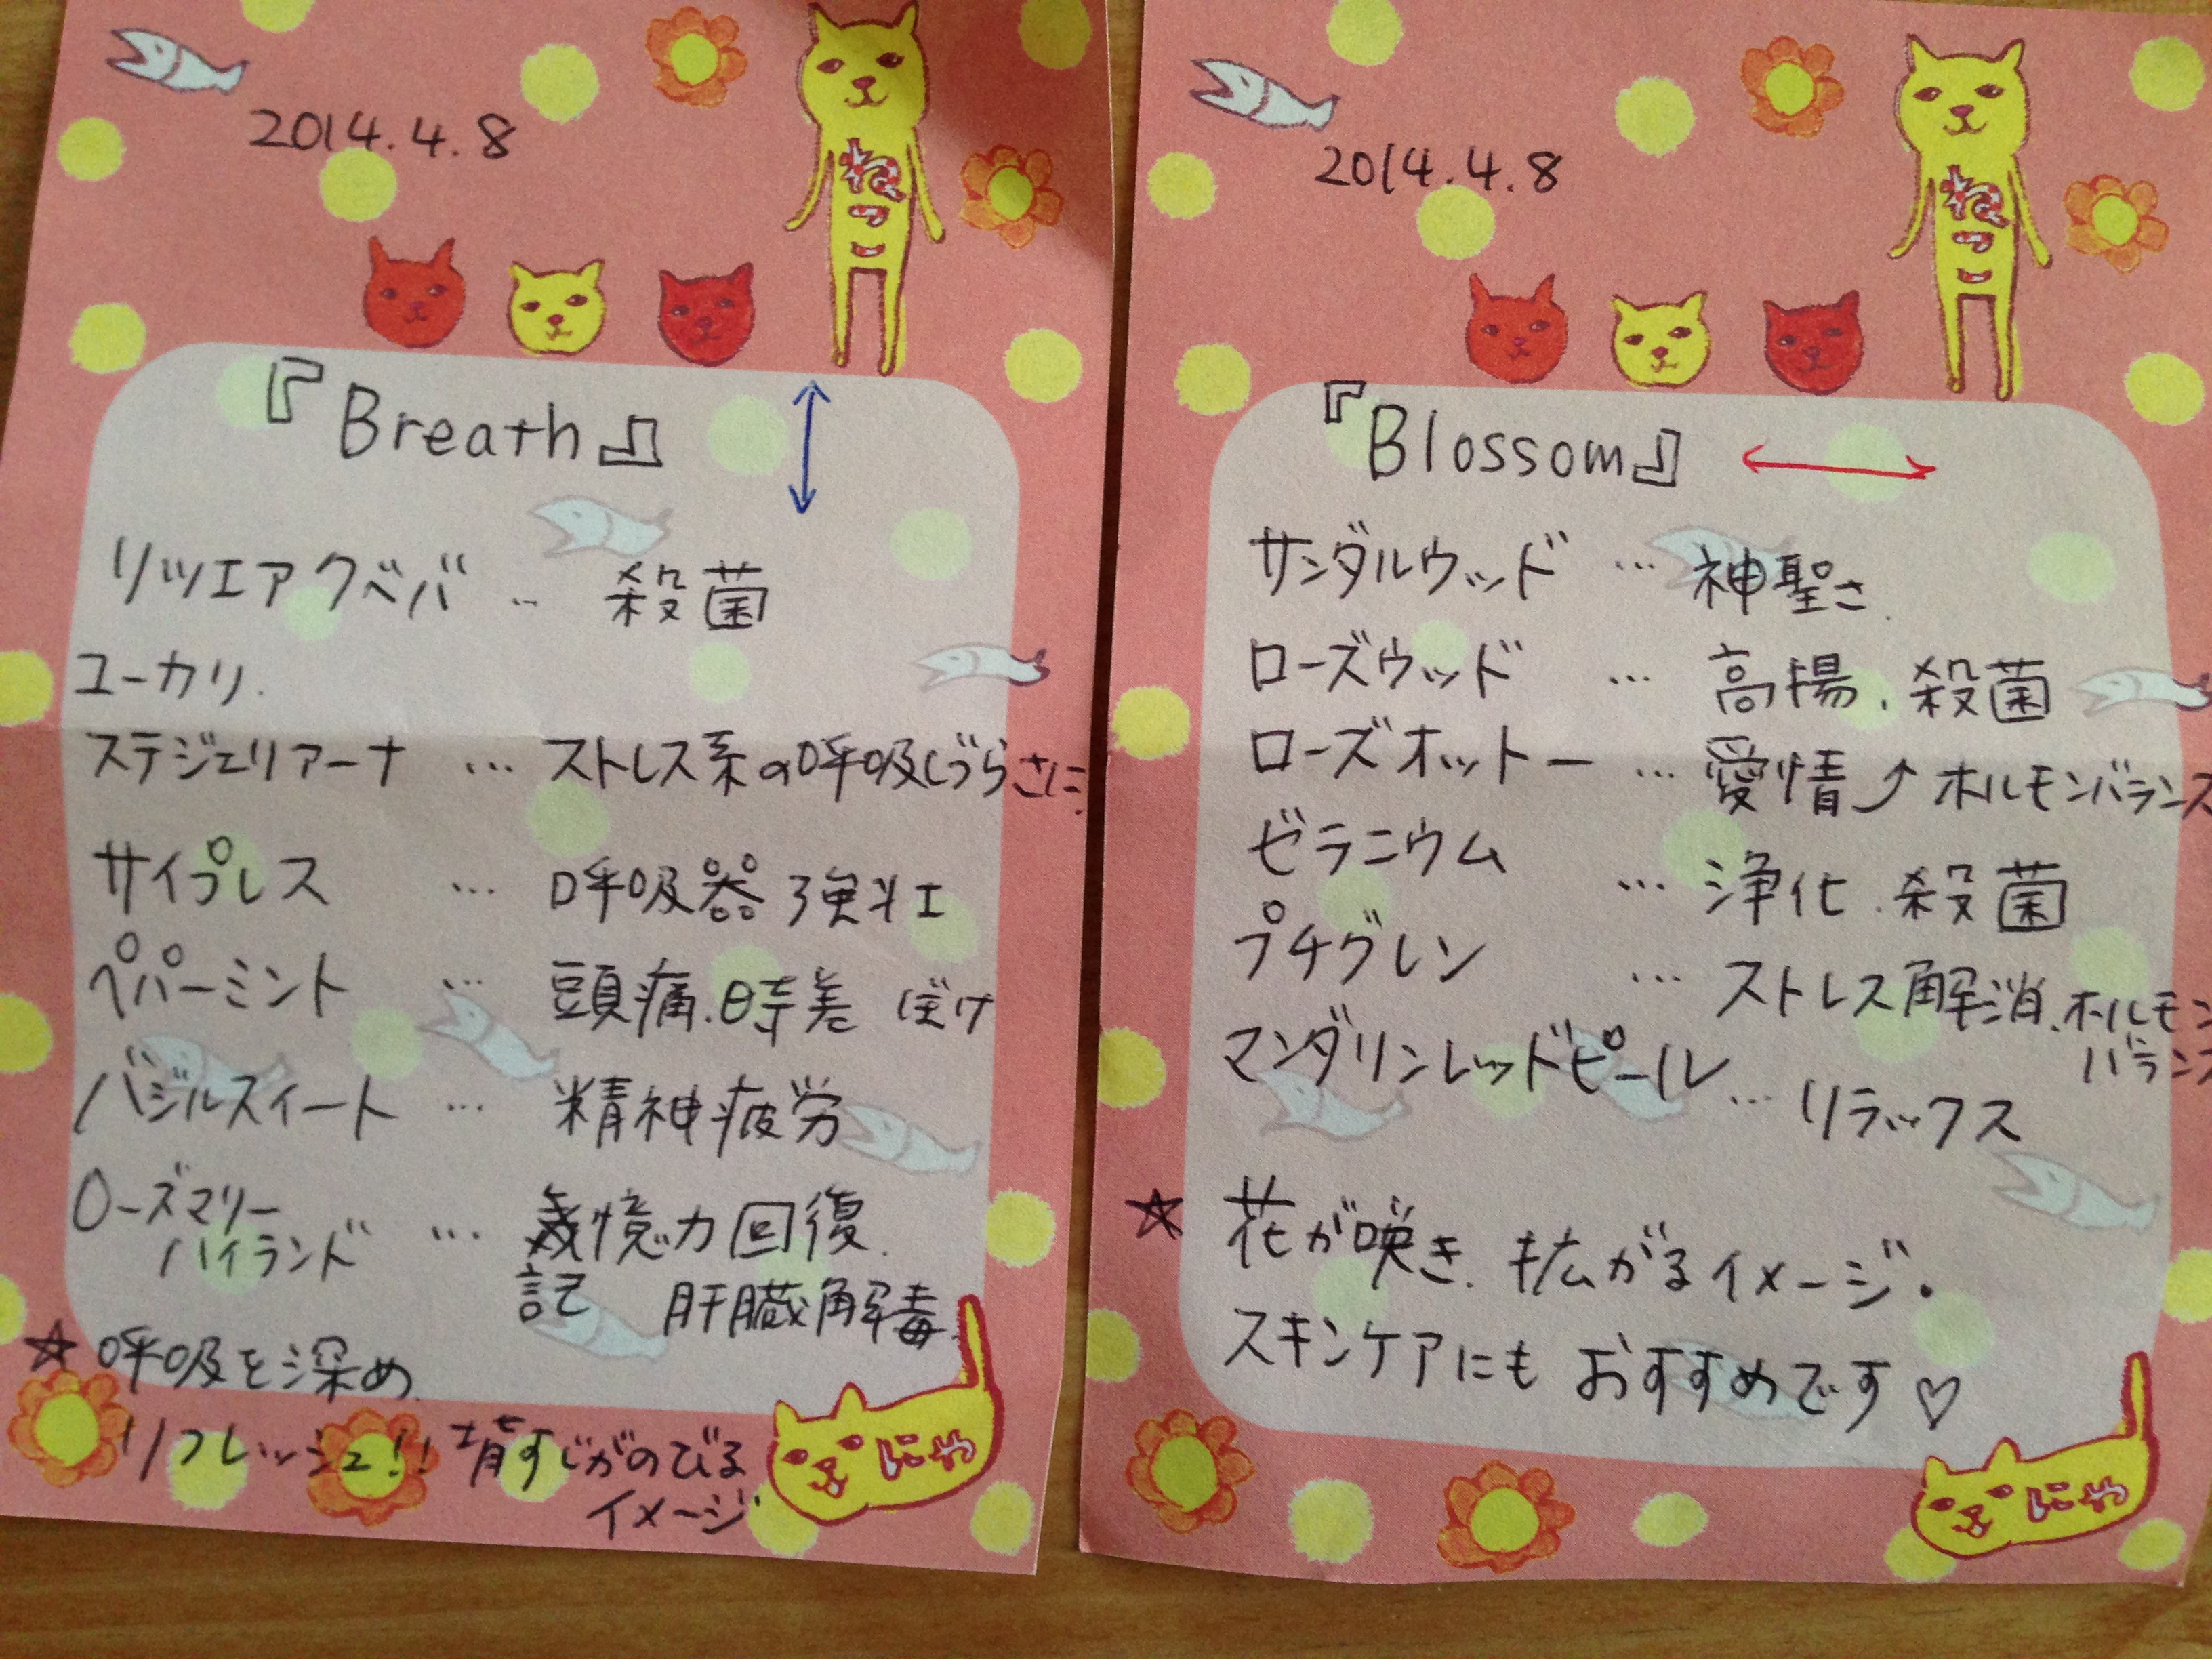 2014.4.8
ねっこ
『Breath』
リツエアクベバ … 殺菌
ユーカリ
ステジェリアーナ … ストレス系の呼吸しづらさに
サイプレス … 呼吸器強壮
ペパーミント … 頭痛、時差ぼけ
バジルスイート … 精神疲労
ローズマリー
ハイランド … 憶力回復、
記 肝臓解毒
☆呼吸を深め、
リフレッシュ!! 背すじがのびる
イメージ
にゃ
2014.4.8
ねっこ
『Blossom』
サンダルウッド … 神聖さ
ローズウッド … 高揚、殺菌
ローズオットー … 愛情⤴ホルモンバランス
ゼラニウム … 浄化、殺菌
プチグレン … ストレス解消、ホルモン
バランス
マンダリンレッドピール … リラックス
☆花が咲き、拡がるイメージ。
スキンケアにもおすすめです♡
にゃ